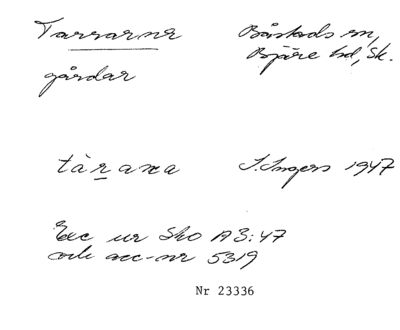 Tararna Båstads sn,
gårdar Bjäre hd, Sk.
tàrana I. Ingers 1947
Exc ur Sko A3:47
och acc-nr 5319
Nr 23336